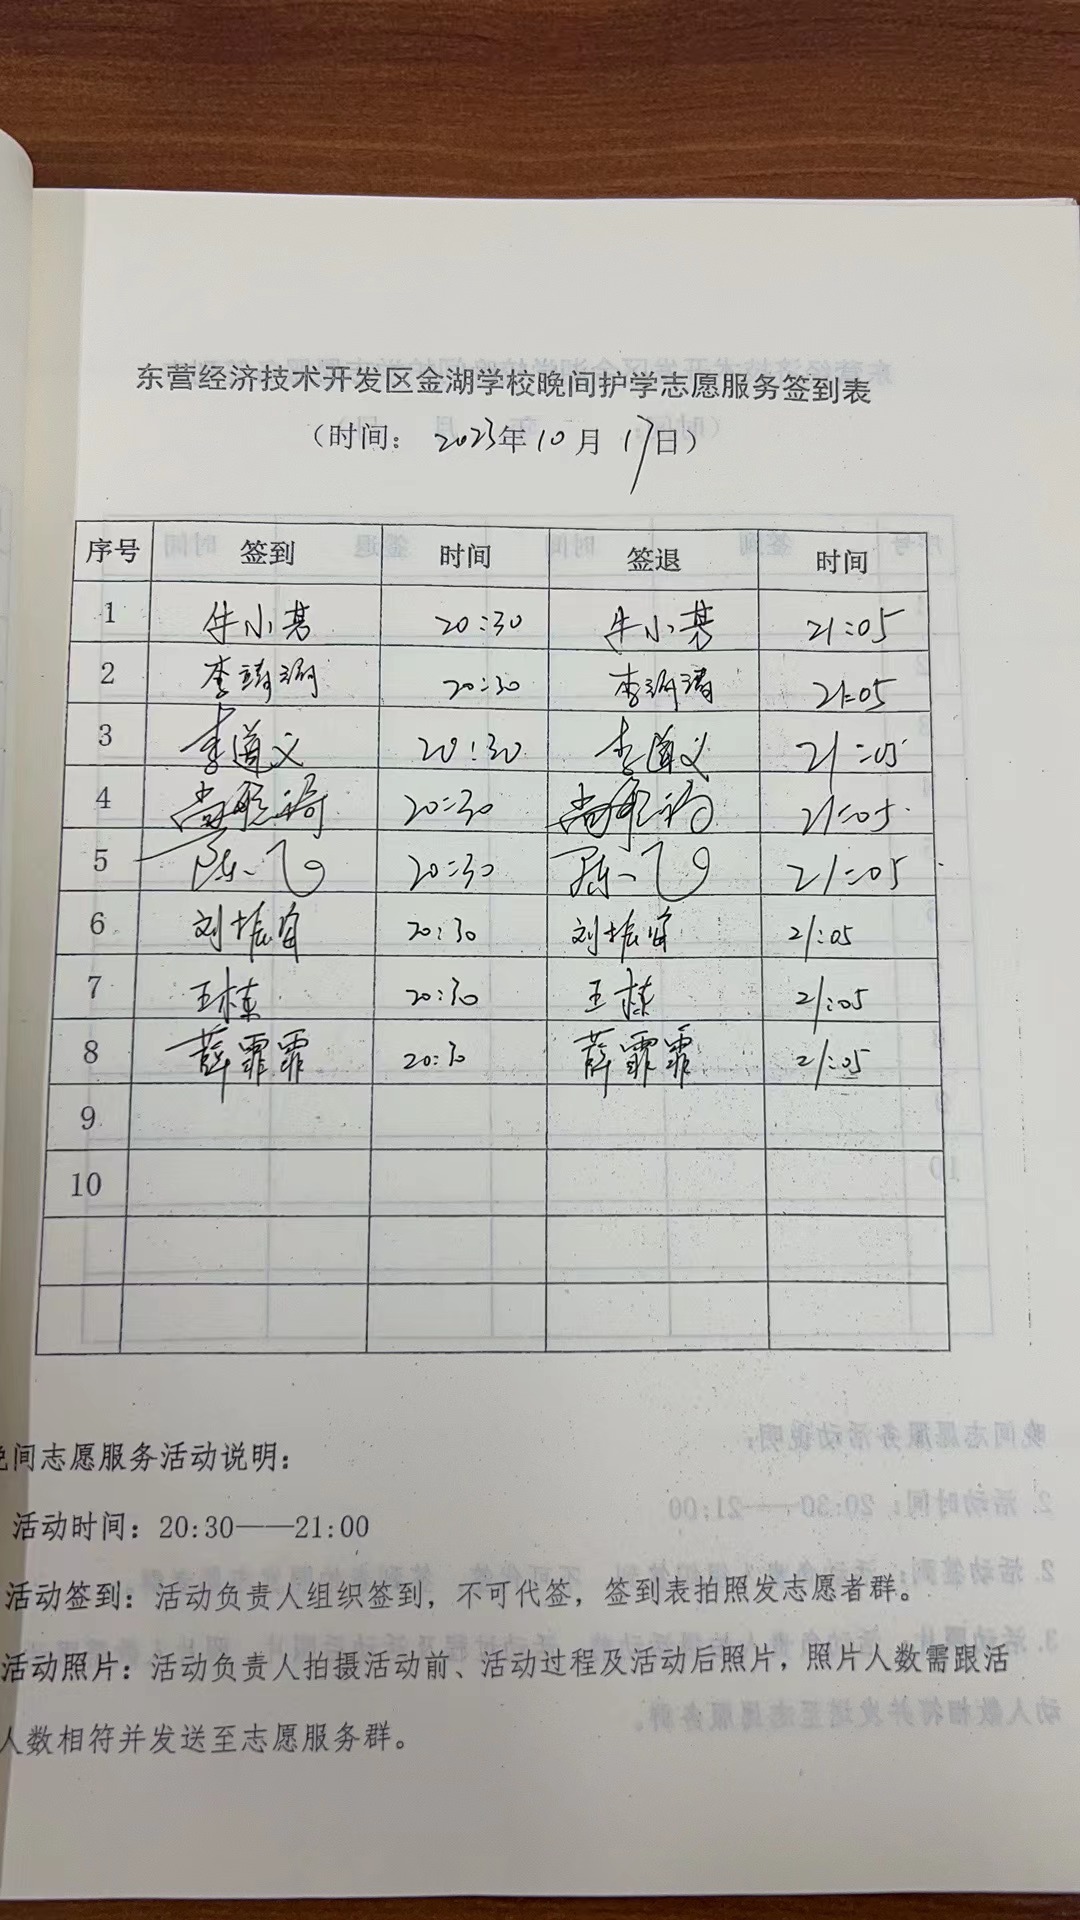 东营经济技术开发区金湖学校晚间护学志愿服务签到表
（时间： 2023年10月17日）
序号 签到 时间 签退 时间
1 牛小萁 20:30 牛小萁 21:05
2 李 20:30 李 21:05
3 李道义 20:30 李道义 21:05
4 尚 20:30 尚 21:05
5 陈飞 20:30 陈飞 21:05
6 刘振宙 20:30 刘振宙 21:05
7 王栋 20:30 王栋 21:05
8 薛霏霏 20:30 薛霏霏 21:05
9
10
间志愿服务活动说明：
活动时间：20:30——21:00
活动签到：活动负责人组织签到，不可代签，签到表拍照发志愿者群。
活动照片：活动负责人拍摄活动前、活动过程及活动后照片，照片人数需跟活
人数相符并发送至志愿服务群。